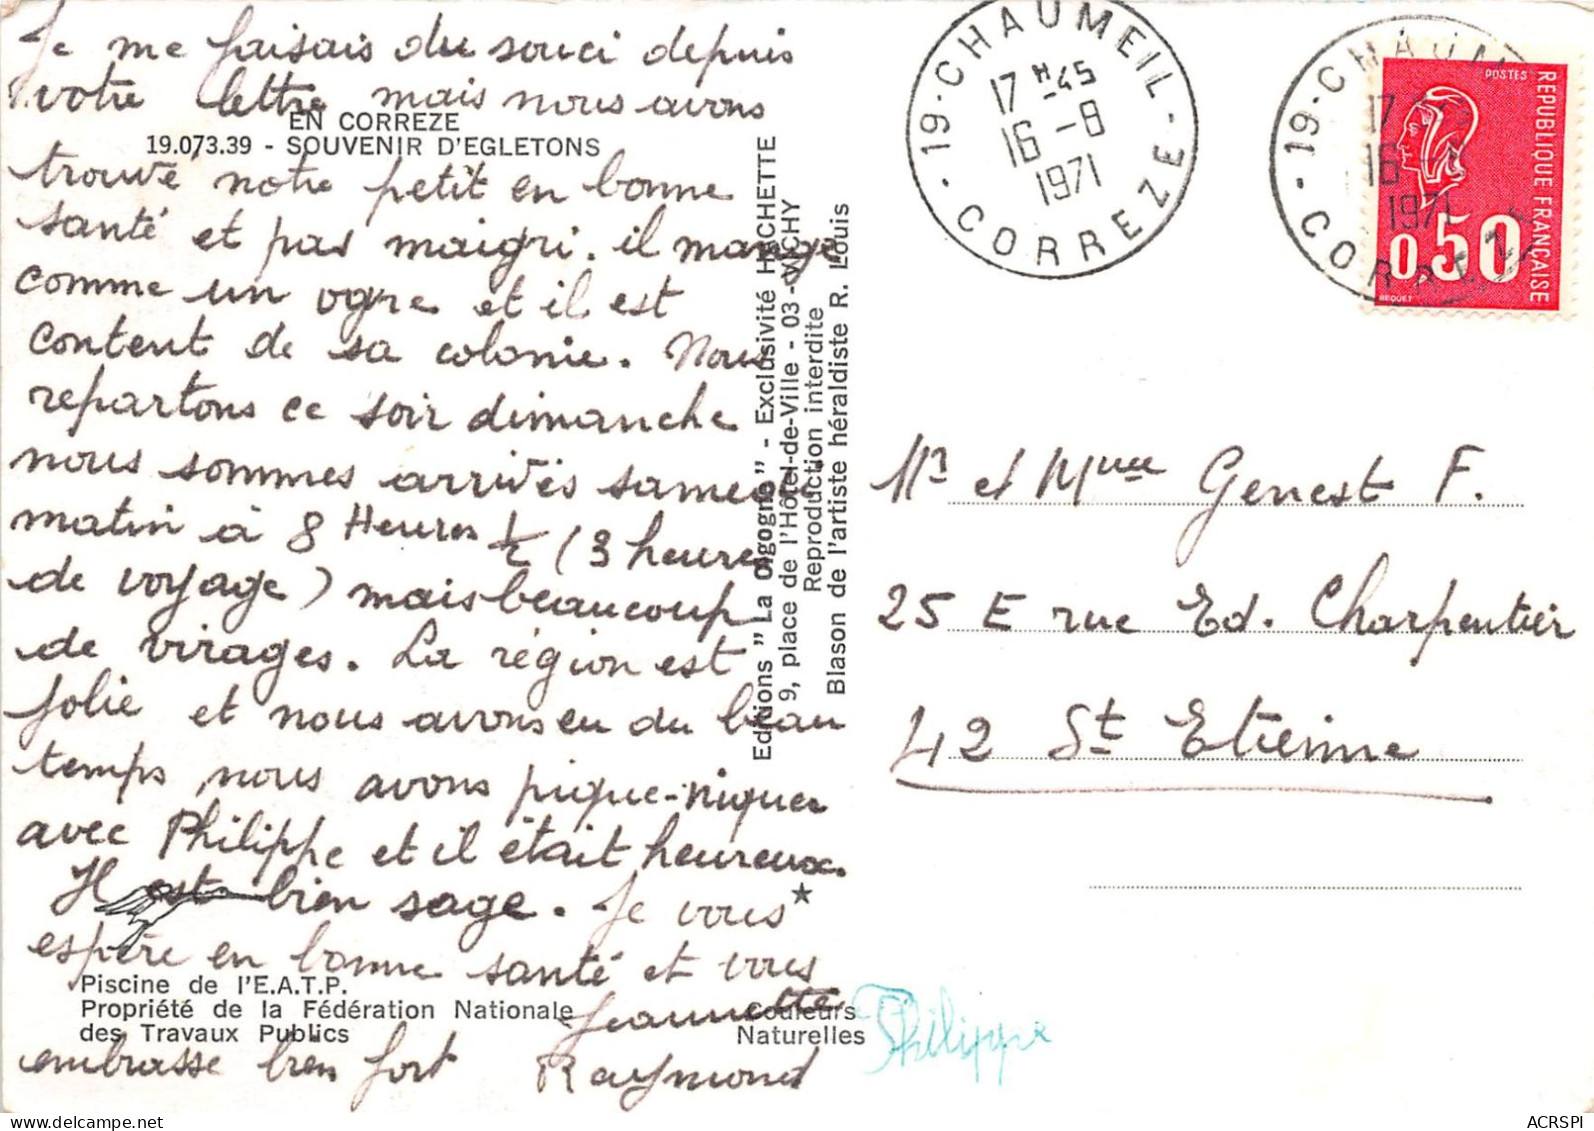 Je me faisais du souci depuis
votre lettre mais nous avons
EN CORREZE
19.073.39 - SOUVENIR D'EGLETONS
trouvé notre petit en bonne
santé et pas maigri. il mange
comme un ogre et il est
content de sa colonie. Nous
repartons ce soir dimanche
nous sommes arrivés samedi
matin à 8 Heures ½ (3 heures
de voyage) mais beaucoup
de virages. La région est
jolie et nous avons eu du beau
temps nous avons pique-niquer
avec Philippe et il était heureux.
Il est bien sage. Je vous
espère en bonne santé et vous
Piscine de l'E.A.T.P.
Propriété de la Fédération Nationale
des Travaux Publics
embrasse bien fort
Jeannette
Raymond
Philippe
Couleurs
Naturelles
Editions "La Cigogne" - Exclusivité HACHETTE
9, place de l'Hôtel-de-Ville - 03 - VICHY
Reproduction interdite
Blason de l'artiste héraldiste R. Louis
19 - CHAUMEIL - CORREZE -
17 H 45
16 - 8
1971
19 - CHAUMEIL - CORREZE -
17
16
1971
POSTES
REPUBLIQUE FRANÇAISE
0,50
BEQUET
Mr et Mme Genest F.
25 E rue Ed. Charpentier
42 St Etienne
ACRSPI